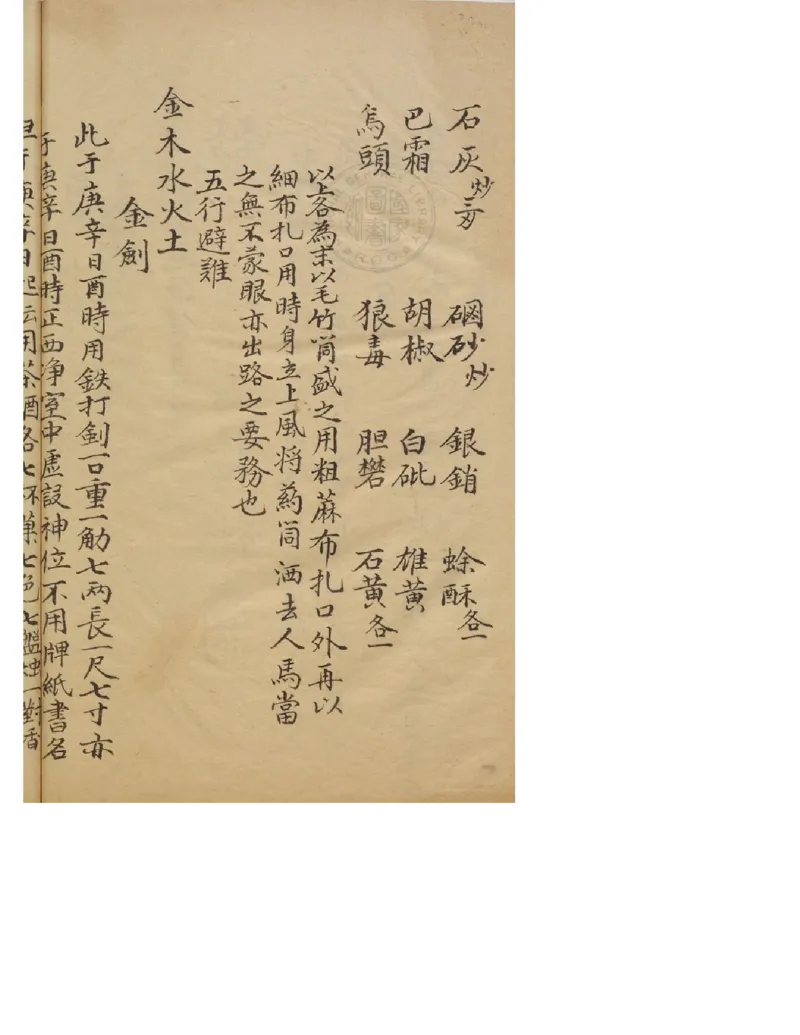 石灰炒三多 硇砂炒 銀銷 蜍酥各一
巴霜 胡椒 白砒 雄黃
烏頭 狼毒 胆礬 石黃各一
以上各為末以毛竹筒盛之用粗蔴布扎口外再以
細布扎口用時身立上風将葯筒洒去人馬當
之無不蒙眼亦出路之要務也
五行避難
金木水火土
金劍
此于庚辛日酉時用鉄打劍一口重一觔七兩長一尺七寸亦
于庚辛日酉時正西净室中虛設神位不用牌紙書名
庚辛日起 用茶酒各七杯菓七色七 一對香